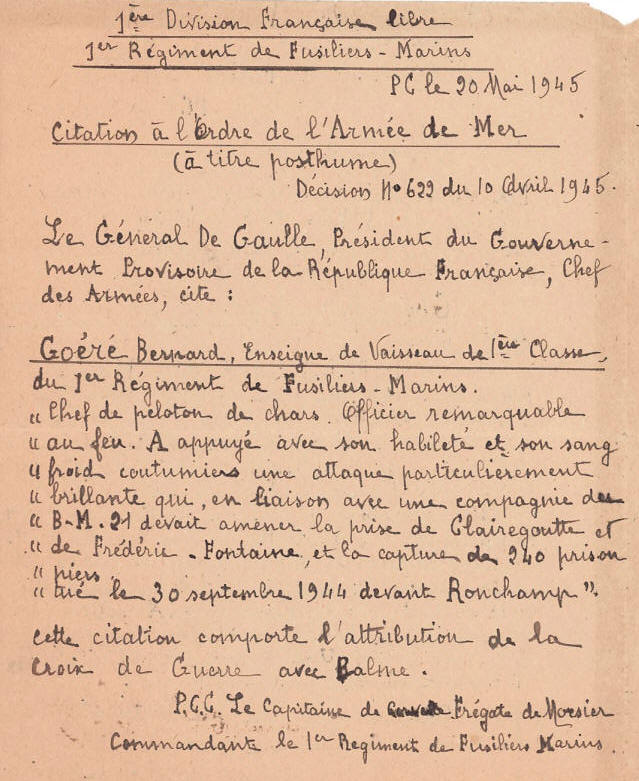 1ère Division Française libre
1er Régiment de Fusiliers-Marins
PC le 20 Mai 1945
Citation à l'Ordre de l'Armée de Mer
(à titre posthume)
Décision No 622 du 10 Avril 1945.
Le Général De Gaulle, Président du Gouverne-
ment Provisoire de la République Française, Chef
des Armées, cite :
Goéré Bernard, Enseigne de Vaisseau de 1ère Classe,
du 1er Régiment de Fusiliers-Marins.
" Chef de peloton de chars. Officier remarquable
" au feu. A appuyé avec son habileté et son sang
" froid coutumiers une attaque particulièrement
" brillante qui, en liaison avec une compagnie du
" B-M. 21 devait amener la prise de Clairegoutte et
" de Frédéric-Fontaine, et la capture de 240 prison
" niers
" tué le 30 septembre 1944 devant Ronchamp".
cette citation comporte l'attribution de la
Croix de Guerre avec Palme.
P.C.C. Le Capitaine de Frégate de Morsier
Commandante le 1er Regiment de Fusiliers Marins.